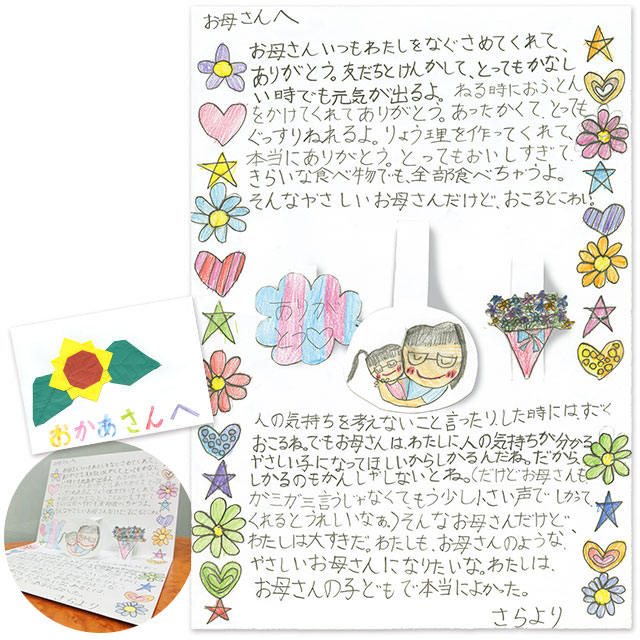 お母さんへ
お母さんいつもわたしをなぐさめてくれて、
ありがとう。友だちとけんかして、とってもかなし
い時でも元気が出るよ。ねる時におふとん
をかけてくれてありがとう。あったかくて、とっても
ぐっすりねれるよ。りょう理を作ってくれて、
本当にありがとう。とってもおいしすぎて、
きらいな食べ物でも、全部食べちゃうよ。
そんなやさしいお母さんだけど、おこるとこわい。
人の気持ちを考えないこと言ったり、した時には、すごく
おこるね。でもお母さんは、わたしに人の気持ちが分かる
やさしい子になってほしいからしかるんだね。だから、
しかるのもかんしゃしないとね。(だけどお母さんも
ガミガミ言うじゃなくてもう少し小さい声でしかって
くれるとうれしいなぁ。)そんなお母さんだけど、
わたしは大すきだ。わたしも、お母さんのような、
やさしいお母さんになりたいな。わたしは、
お母さんの子どもで本当によかった。
さらより
おかあさんへ